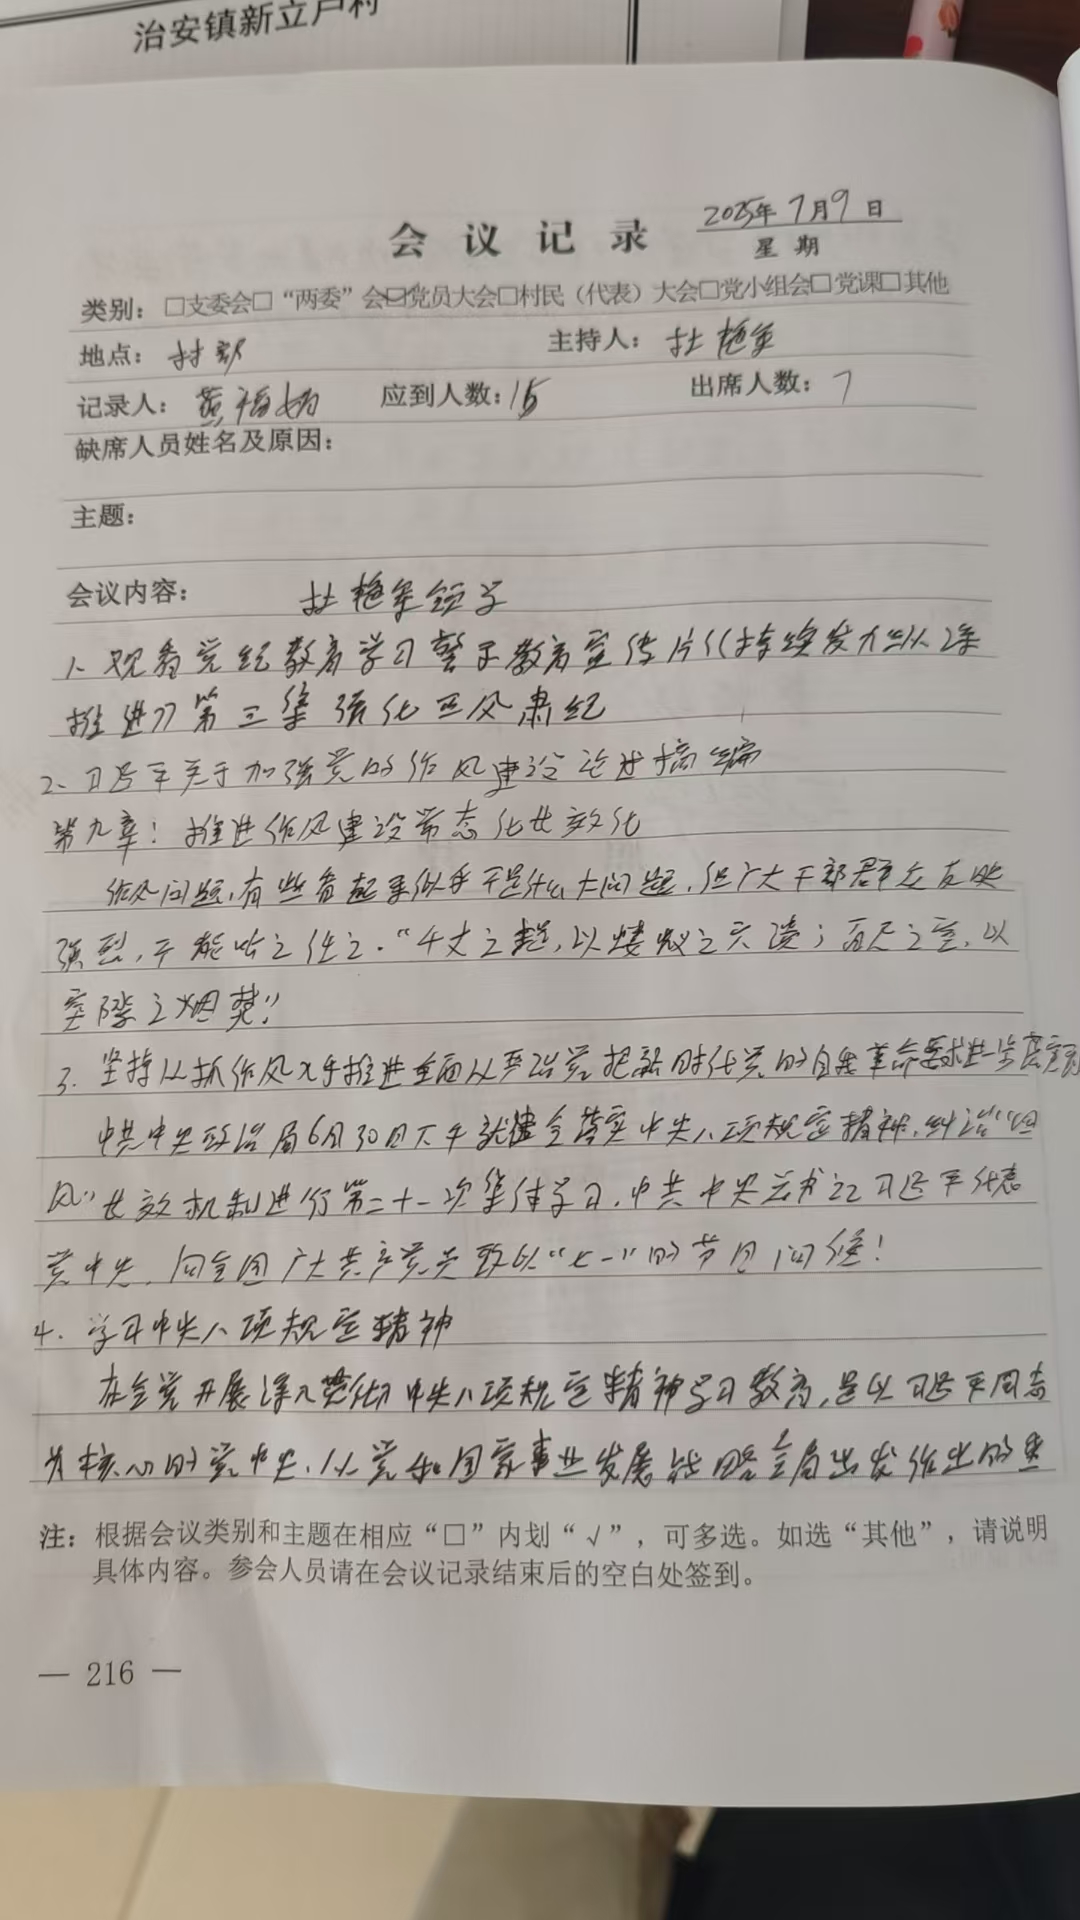 治安镇新立户村
会议记录
2025年7月9日
星期
类别：□支委会□“两委”会☑党员大会□村民（代表）大会□党小组会□党课□其他
地点：村部 主持人：杜艳
记录人：黄 应到人数：15 出席人数：7
缺席人员姓名及原因：
主题：
会议内容： 杜艳 领学
1、观看党纪教育学习警示教育宣传片《持续发力纵深
推进》第三集 强化正风肃纪
2、习近平关于加强党的作风建设论述摘编
第九章：推进作风建设常态化长效化
作风问题，有些看起来似乎不是什么大问题，但广大干部群众反映
强烈，不能听之任之。“千丈之堤，以蝼蚁之穴溃；百尺之室，以
突隙之烟焚”
3、坚持以抓作风入手推进全面从严治党把新时代党的自我革命要求进一步落实到
中共中央政治局6月30日下午就健全落实中央八项规定精神，纠治“四
风”长效机制进行第二十一次集体学习，中共中央总书记习近平代表
党中央，向全国广大共产党员致以“七一”的节日问候！
4、学习中央八项规定精神
在全党开展深入贯彻中央八项规定精神学习教育，是以习近平同志
为核心的党中央，从党和国家事业发展战略全局出发作出的重
注：根据会议类别和主题在相应“□”内划“√”，可多选。如选“其他”，请说明
具体内容。参会人员请在会议记录结束后的空白处签到。
— 216 —